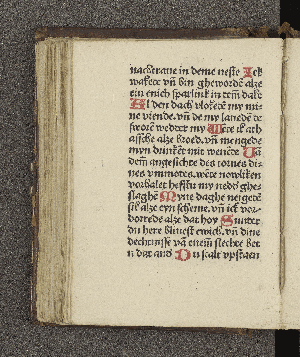 nachtraue in deme neste Ick
wakete vn̄ bin ghewordē alze
ein enich sparlink in dem dake
Al den dach vloketē my mi-
ne viende. vn̄ de my lauedē de
sworē wedder my Wēte ik ath
assche alze broed. vn̄ mengede
myn drunkē mit wenēde Uā
dem angesichte des tornes di-
nes vnmotes. wēte nowliken
vorhalet hefftu my nedd̕ ghe-
slaghē Myne daghe neygetē
sik alze eyn scheme. vn̄ ick vor-
dorrede alze dat hoy Sunder
du here bliuest ewich. vn̄ dine
dechtnisse vā enem slechte bet
in dat and̕ Du scalt vpstaen